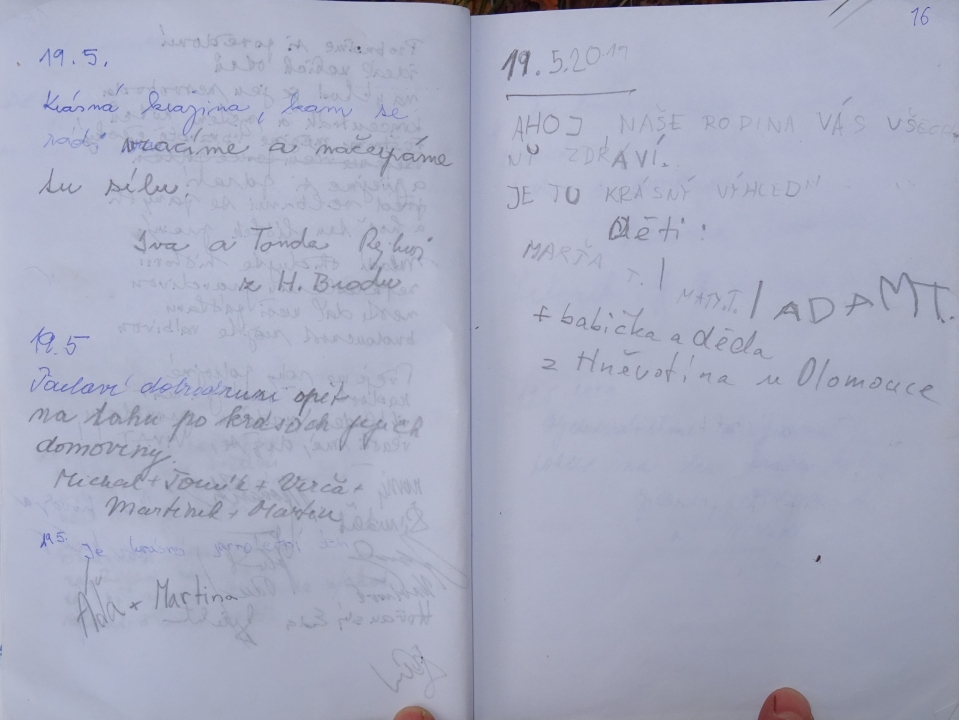 19.5.
Krásná krajina, kam se
rádi vracíme a načerpáme
tu sílu.
Iva a Tonda
z H. Brodu
19.5
dobrodruzi opět
na tahu po krásách jejich
domoviny.
Michal + Tomík + Verča +
Martínek + Martin
19.5. Je krásně
Áďa + Martina
16
19.5.2019
AHOJ NAŠE RODINA VÁS VŠECH
NY ZDRAVÍ.
JE TU KRÁSNÝ VÝHLED!!
děti:
MARŤA T. / MATY.T. / ADAM T.
+ babička a děda
z Hněvotína u Olomouce